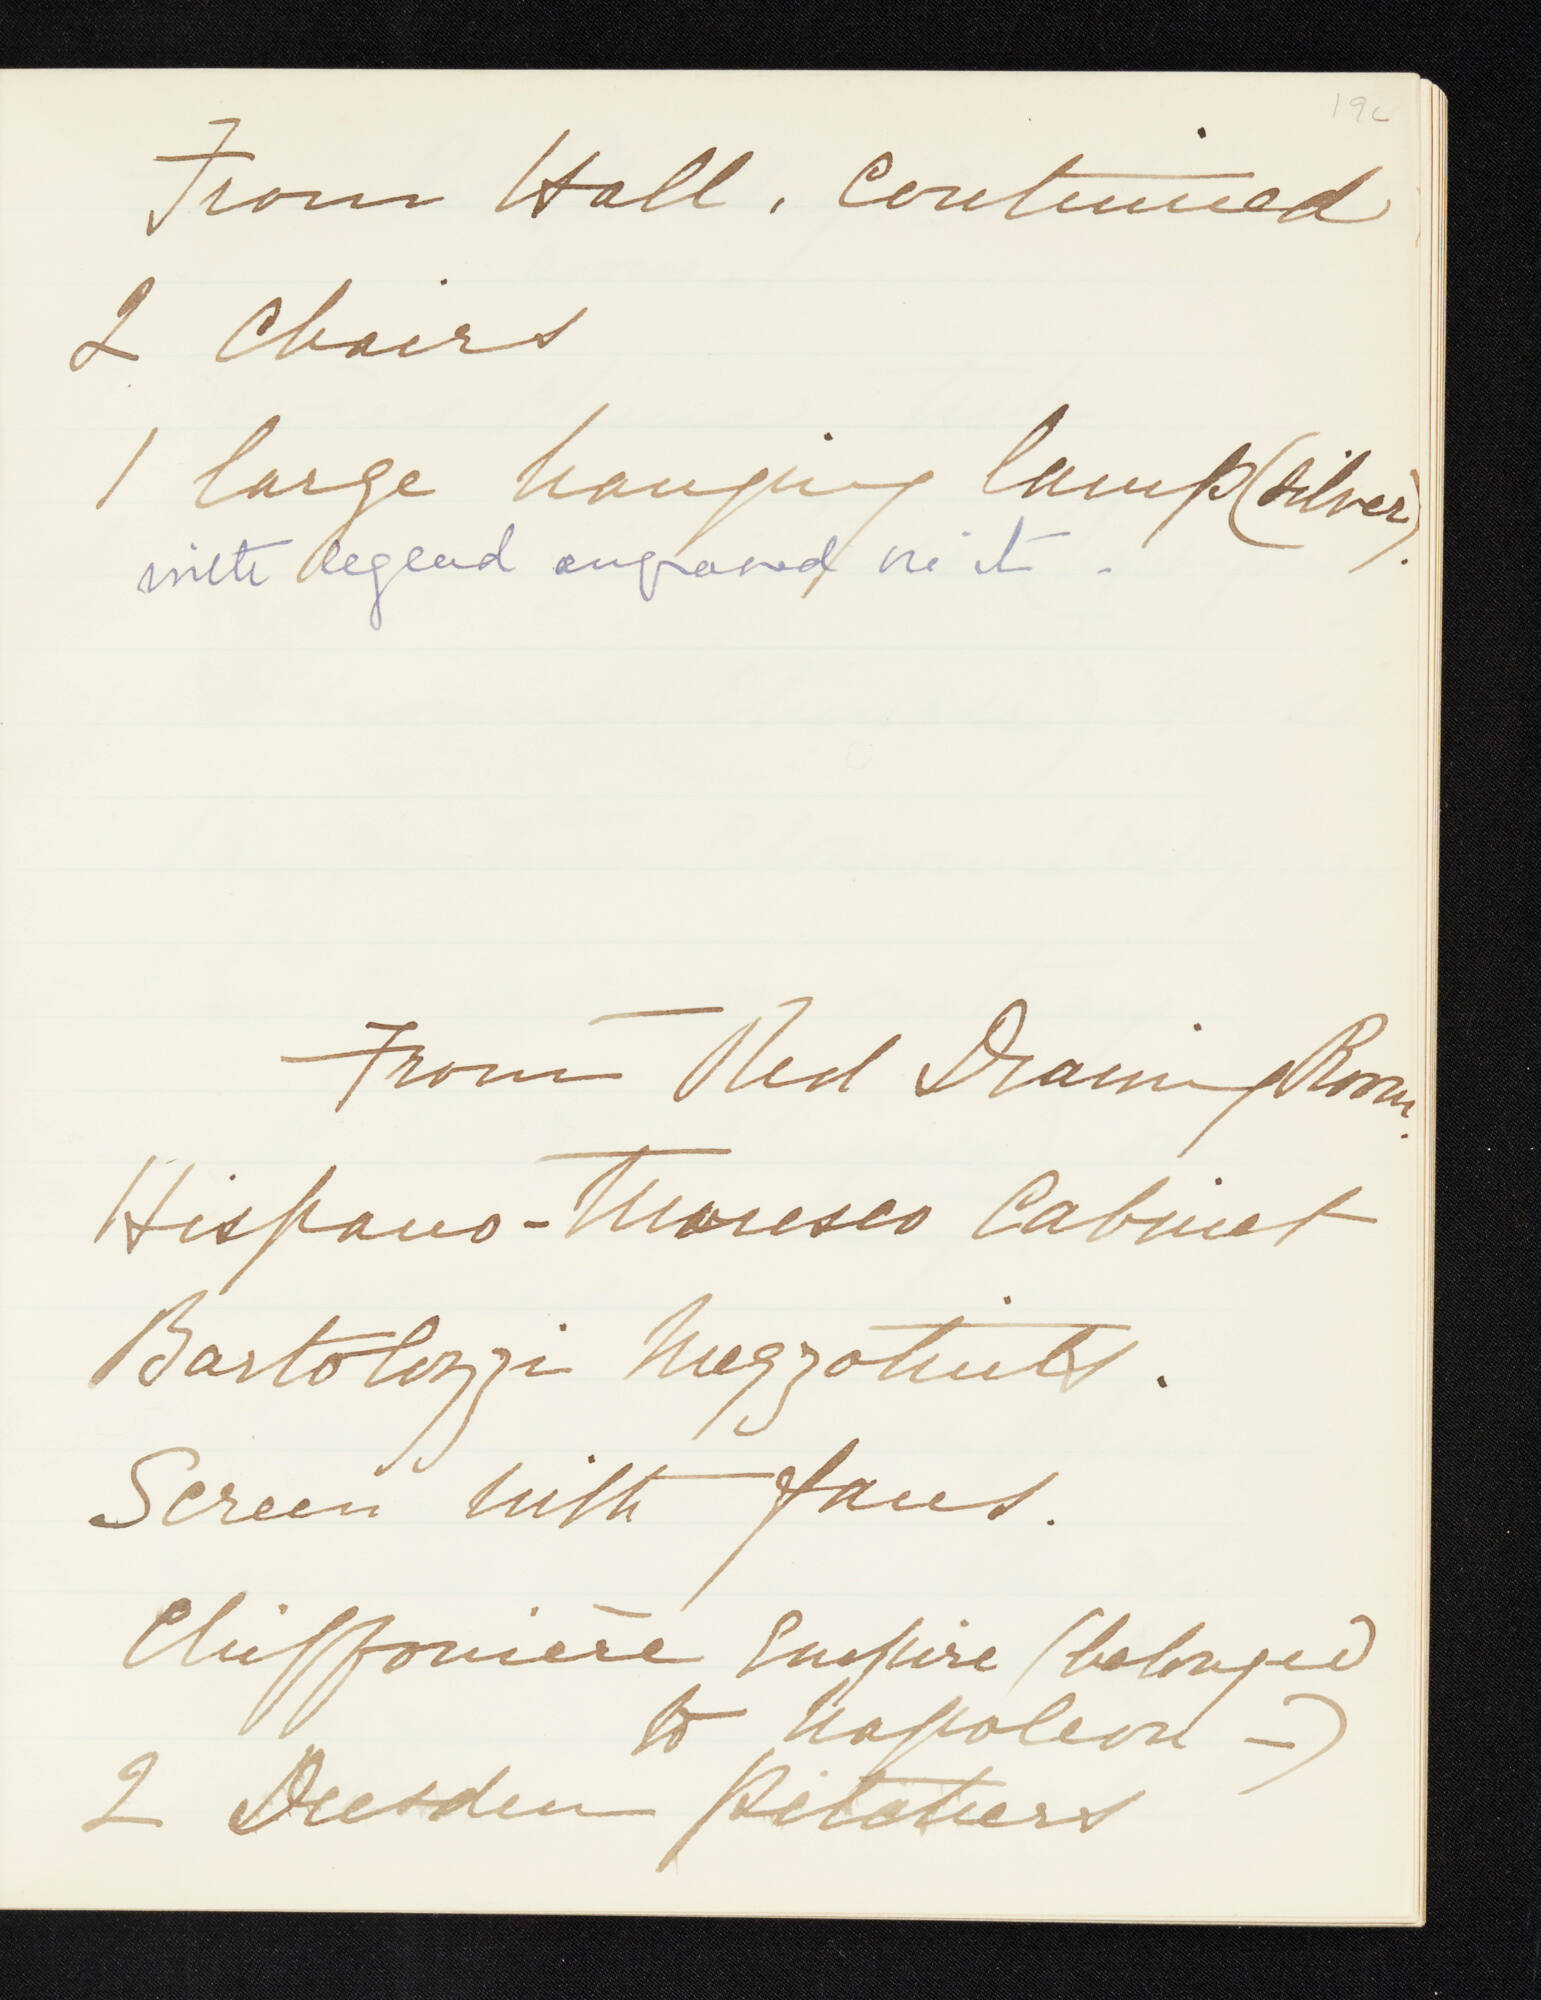 19c
From Hall. Continued
2 Chairs
1 large hanging lamp (silver).
with legend engraved on it.
From Red Drawing Room.
Hispano-Moresco Cabinet
Bartolozzi Mezzotints.
Screen with fans.
Chiffonière Empire (belonged
to Napoleon -)
2 Dresden Pitchers